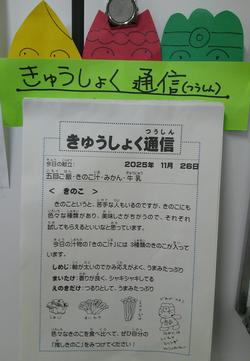 きゅうしょく 通信(つうしん)
きゅうしょく通信
つうしん
2025年 11月 26日
今日の献立
五目ご飯・きのこ汁・みかん・牛乳
＜ きのこ ＞
きのこというと、苦手な人もいるのですが、きのこにも
色々な種類があり、美味しさがちがうので、それぞれ
試してもらえるといいなと思っています。
今日の汁物の「きのこ汁」には 3種類のきのこが入って
います。
しめじ：
かみ応えがよく、うまみたっぷり
まいたけ：香りが良く、シャキシャキしてる
えのきだけ：つるりとして、うまみたっぷり
色々なきのこを食べ比べて、ぜひ自分の
「推しきのこ」をみつけてください！